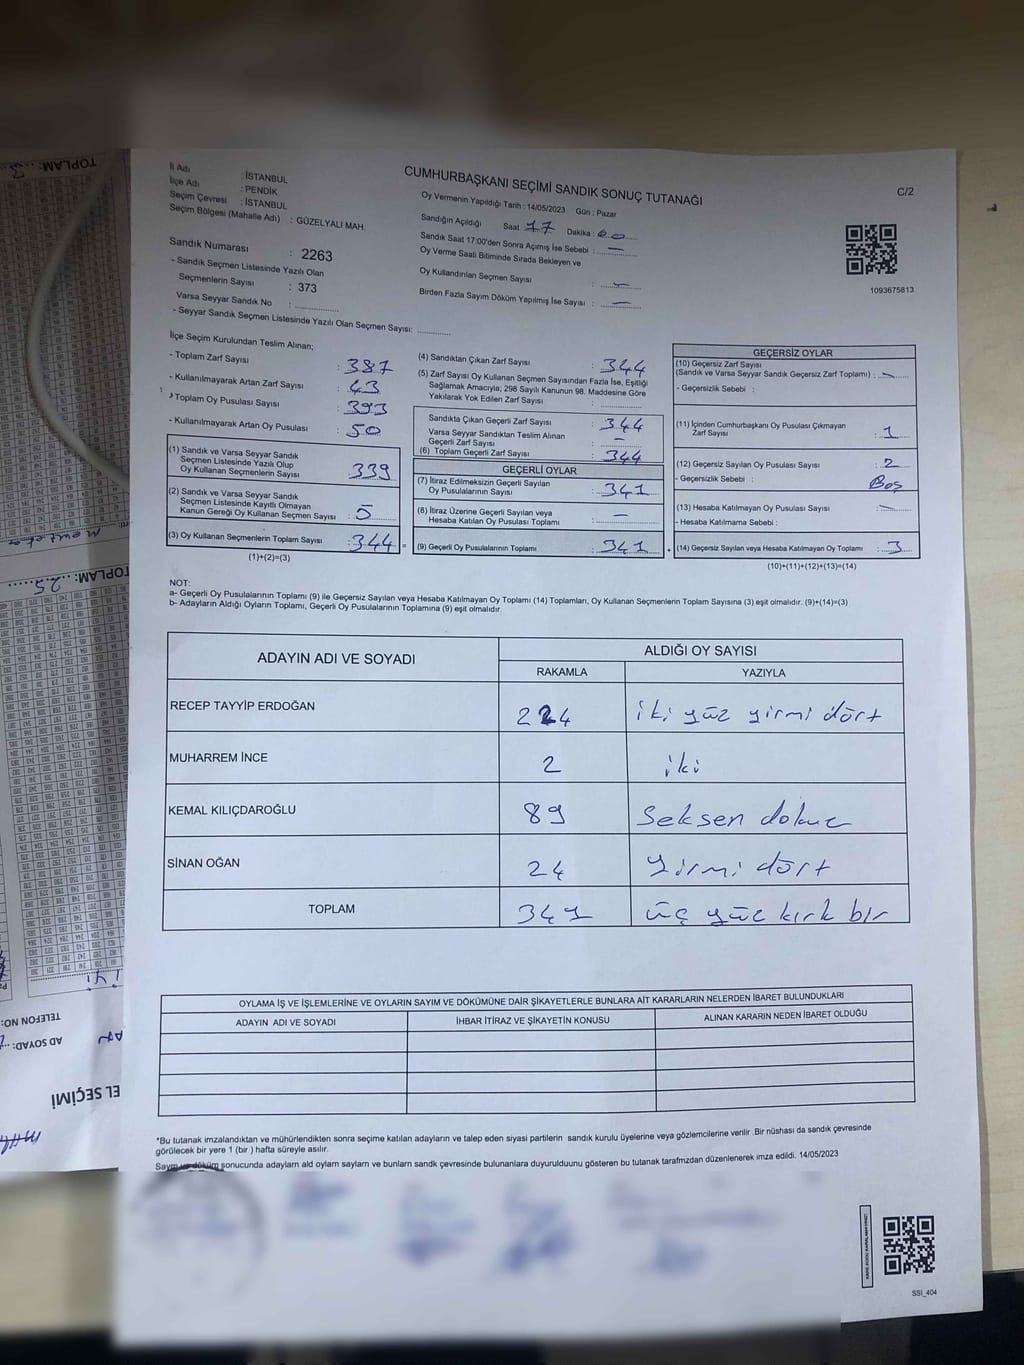 CUMHURBAŞKANI SEÇİMİ SANDIK SONUÇ TUTANAĞI
C/2
İl Adı : İSTANBUL
İlçe Adı : PENDİK
Seçim Çevresi : İSTANBUL
Seçim Bölgesi (Mahalle Adı) : GÜZELYALI MAH.
Oy Vermenin Yapıldığı Tarih : 14/05/2023 Gün : Pazar
Sandığın Açıldığı Saat 17 Dakika : 00
Sandık Saat 17:00'den Sonra Açımış İse Sebebi : —
Oy Verme Saati Bitiminde Sırada Bekleyen ve
Oy Kullandırılan Seçmen Sayısı : —
Birden Fazla Sayım Döküm Yapılmış İse Sayısı : —
1093675813
Sandık Numarası : 2263
- Sandık Seçmen Listesinde Yazılı Olan
Seçmenlerin Sayısı : 373
Varsa Seyyar Sandık No :
- Seyyar Sandık Seçmen Listesinde Yazılı Olan Seçmen Sayısı:
İlçe Seçim Kurulundan Teslim Alınan;
- Toplam Zarf Sayısı : 387
- Kullanılmayarak Artan Zarf Sayısı : 43
Toplam Oy Pusulası Sayısı : 393
- Kullanılmayarak Artan Oy Pusulası : 50
(1) Sandık ve Varsa Seyyar Sandık
Seçmen Listesinde Yazılı Olup
Oy Kullanan Seçmenlerin Sayısı : 339
(2) Sandık ve Varsa Seyyar Sandık
Seçmen Listesinde Kayıtlı Olmayan
Kanun Gereği Oy Kullanan Seçmen Sayısı : 5
(3) Oy Kullanan Seçmenlerin Toplam Sayısı : 344
(1)+(2)=(3)
(4) Sandıktan Çıkan Zarf Sayısı : 344
(5) Zarf Sayısı Oy Kullanan Seçmen Sayısından Fazla İse, Eşitliği
Sağlamak Amacıyla; 298 Sayılı Kanunun 98. Maddesine Göre
Yakılarak Yok Edilen Zarf Sayısı :
Sandıkta Çıkan Geçerli Zarf Sayısı : 344
Varsa Seyyar Sandıktan Teslim Alınan
Geçerli Zarf Sayısı : —
(6) Toplam Geçerli Zarf Sayısı : 344
GEÇERLİ OYLAR
(7) İtiraz Edilmeksizin Geçerli Sayılan
Oy Pusulalarının Sayısı : 341
(8) İtiraz Üzerine Geçerli Sayılan veya
Hesaba Katılan Oy Pusulası Toplamı : —
(9) Geçerli Oy Pusulalarının Toplamı : 341
GEÇERSİZ OYLAR
(10) Geçersiz Zarf Sayısı
(Sandık ve Varsa Seyyar Sandık Geçersiz Zarf Toplamı) : —
- Geçersizlik Sebebi :
(11) İçinden Cumhurbaşkanı Oy Pusulası Çıkmayan
Zarf Sayısı : 1
(12) Geçersiz Sayılan Oy Pusulası Sayısı : 2
- Geçersizlik Sebebi : Boş
(13) Hesaba Katılmayan Oy Pusulası Sayısı : —
- Hesaba Katılmama Sebebi :
(14) Geçersiz Sayılan veya Hesaba Katılmayan Oy Toplamı : 3
(10)+(11)+(12)+(13)=(14)
NOT:
a- Geçerli Oy Pusulalarının Toplamı (9) ile Geçersiz Sayılan veya Hesaba Katılmayan Oy Toplamı (14) Toplamları, Oy Kullanan Seçmenlerin Toplam Sayısına (3) eşit olmalıdır. (9)+(14)=(3)
b- Adayların Aldığı Oyların Toplamı, Geçerli Oy Pusulalarının Toplamına (9) eşit olmalıdır.
ADAYIN ADI VE SOYADI
ALDIĞI OY SAYISI
RAKAMLA YAZIYLA
RECEP TAYYİP ERDOĞAN 224 iki yüz yirmi dört
MUHARREM İNCE 2 iki
KEMAL KILIÇDAROĞLU 89 Seksen dokuz
SİNAN OĞAN 24 yirmi dört
TOPLAM 341 üç yüz kırk bir
OYLAMA İŞ VE İŞLEMLERİNE VE OYLARIN SAYIM VE DÖKÜMÜNE DAİR ŞİKAYETLERLE BUNLARA AİT KARARLARIN NELERDEN İBARET BULUNDUKLARI
ADAYIN ADI VE SOYADI
İHBAR İTİRAZ VE ŞİKAYETİN KONUSU
ALINAN KARARIN NEDEN İBARET OLDUĞU
*Bu tutanak imzalandıktan ve mühürlendikten sonra seçime katılan adayların ve talep eden siyasi partilerin sandık kurulu üyelerine veya gözlemcilerine verilir .Bir nüshası da sandık çevresinde
görülecek bir yere 1 (bir ) hafta süreyle asılır.
Saym ve döküm sonucunda adaylarn ald oylarn saylarn ve bunlarn sandk çevresinde bulunanlara duyurulduunu gösteren bu tutanak tarafmzdan düzenlenerek imza edildi. 14/05/2023
SSI_404
TOPLAM:
TOPLAM: ..25
TELEFON NO:
AD SOYAD:
EL SEÇİMİ